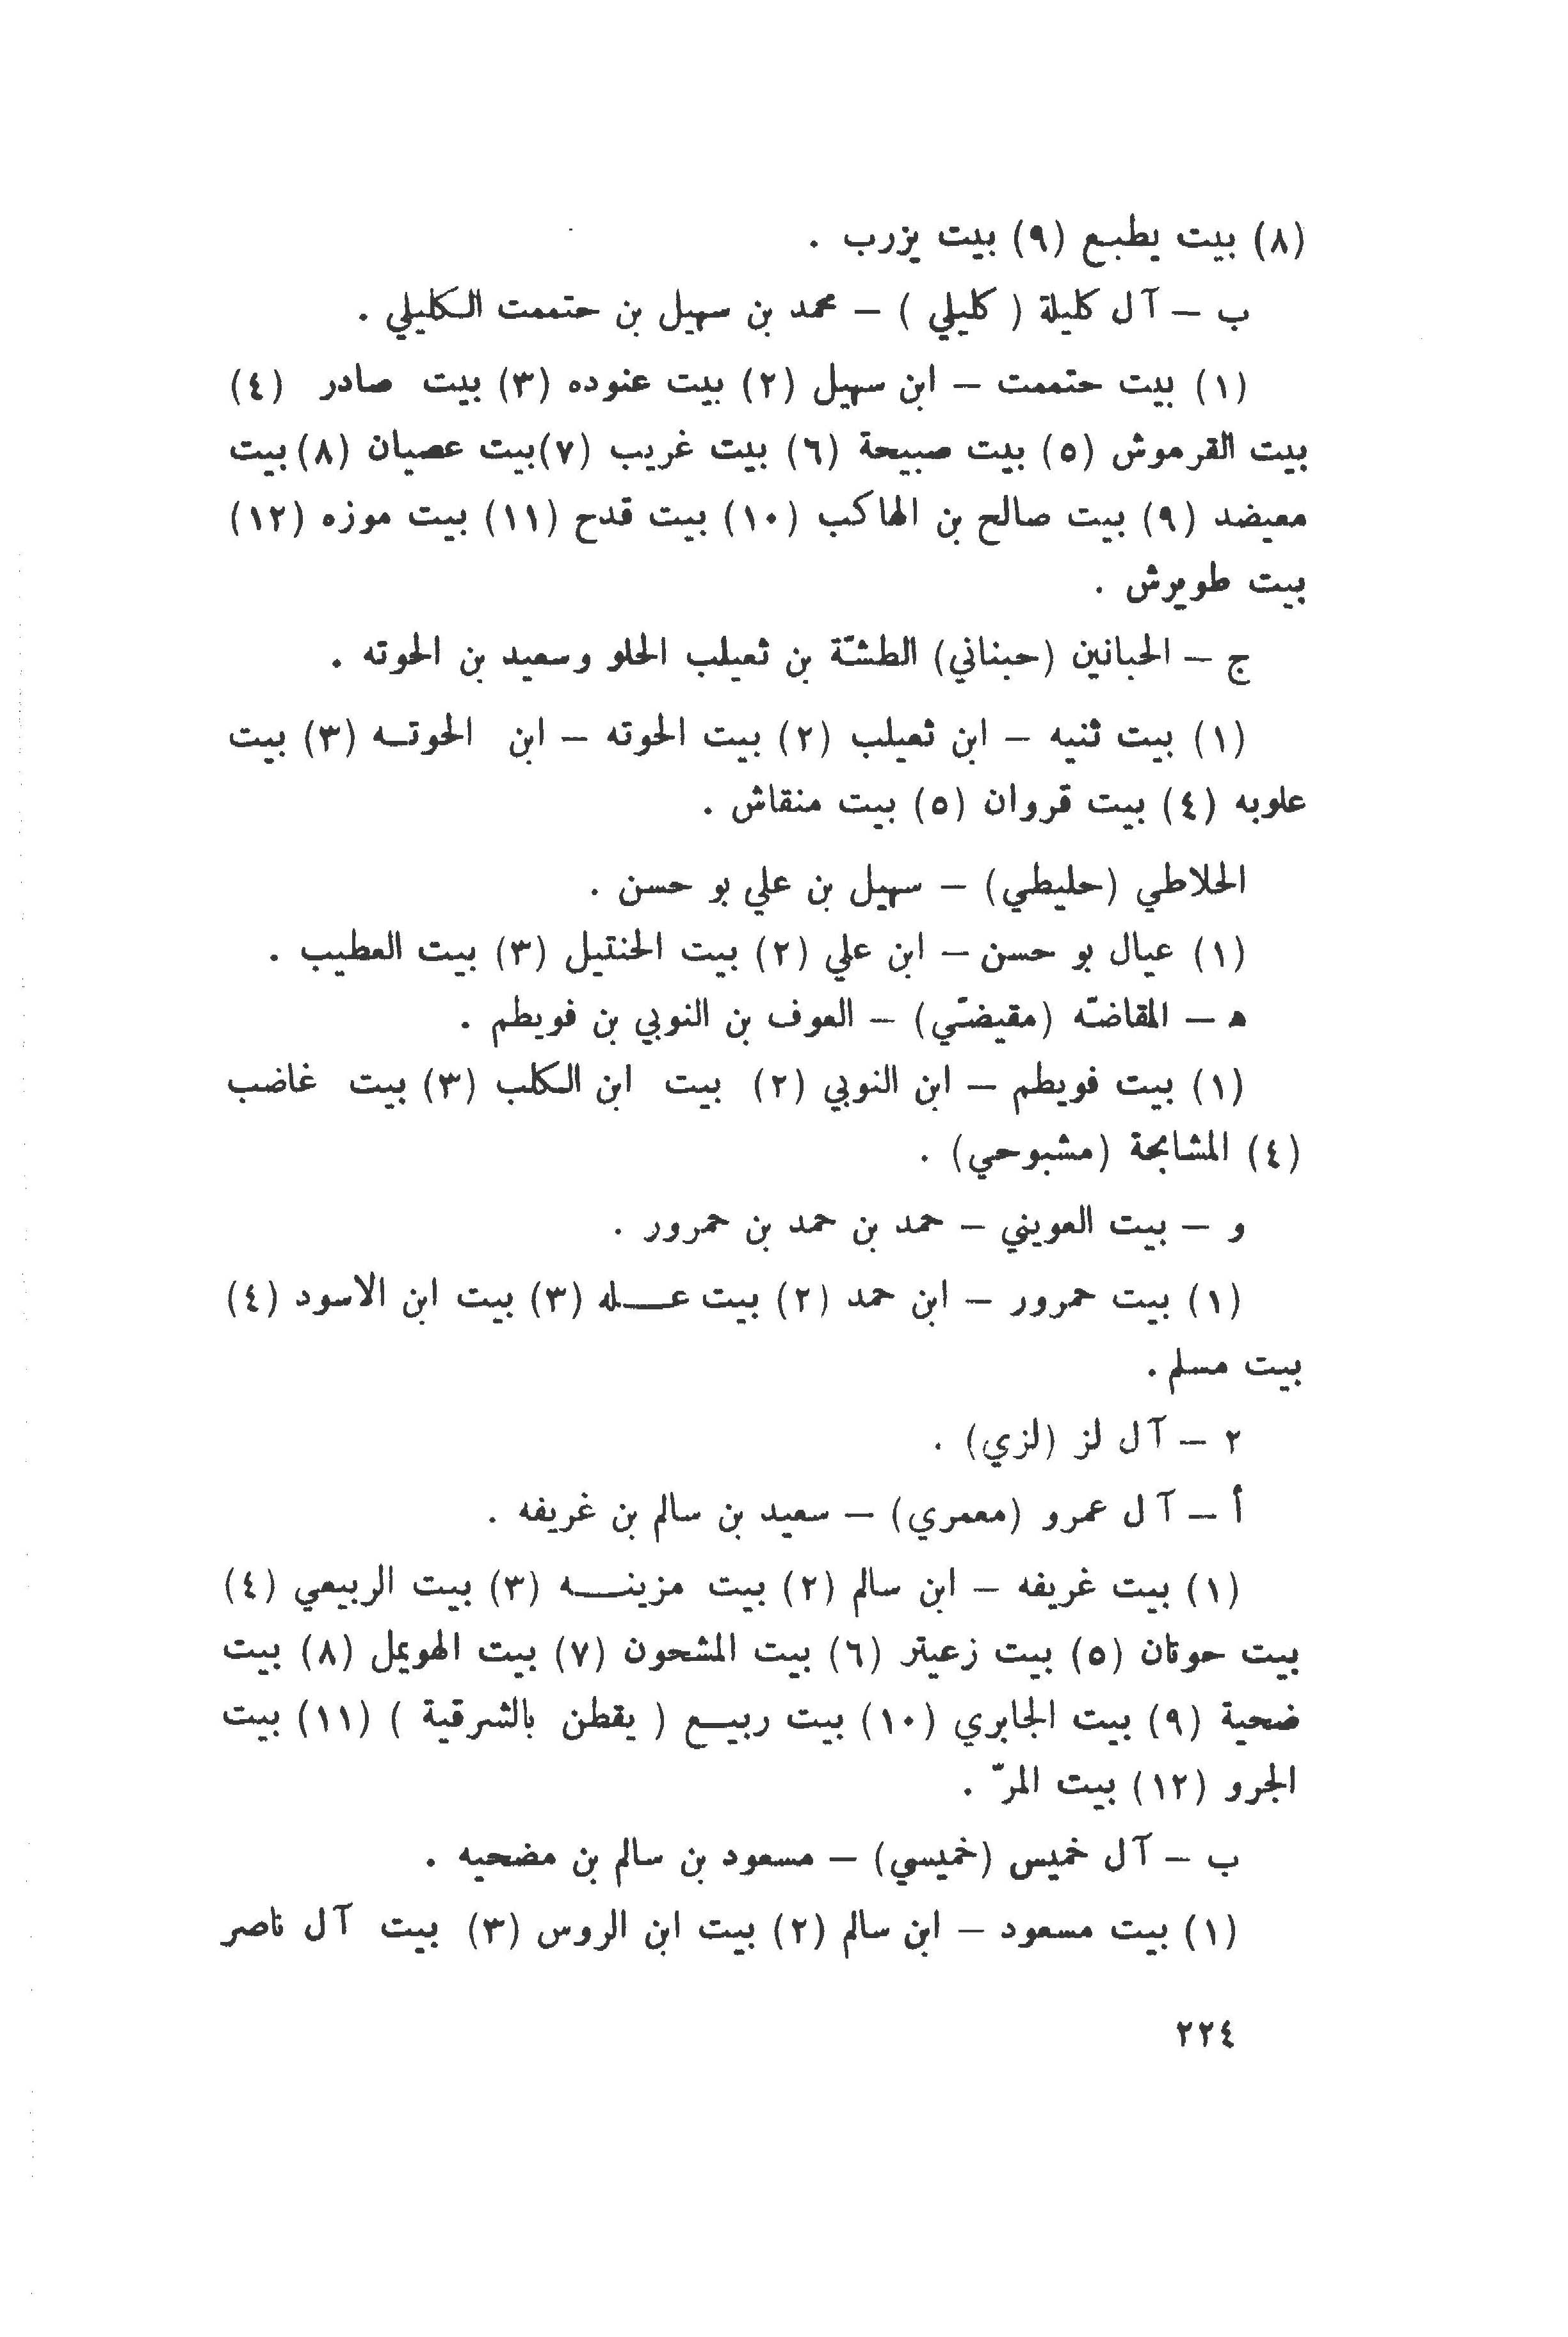 (٨) بيت يطبع (٩) بيت يزرب .
ب – آل كليلة ( كليلي ) – محمد بن سهيل بن حتممت الكليلي .
(١) بيت حتممت – ابن سهيل (٢) بيت عنوده (٣) بيت صادر (٤)
بيت القرموش (٥) بيت صبيحة (٦) بيت غريب (٧)بيت عصيان (٨) بيت
معيضد (٩) بيت صالح بن الهاكب (١٠) بيت قدح (١١) بيت موزه (١٢)
بيت طويرش .
ج – الحبانين (حبناني) الطشّة بن ثعيلب الحلو وسعيد بن الحوته .
(١) بيت ثنيه – ابن ثعيلب (٢) بيت الحوته – ابن الحوتـه (٣) بيت
علوبه (٤) بيت قروان (٥) بيت منقاش .
الحلاطي (حليطي) – سهيل بن علي بو حسن .
(١) عيال بو حسن – ابن علي (٢) بيت الحنتيل (٣) بيت العطيب .
ه – المقاضّه (مقيضّي) – العوف بن النوبي بن فويطم .
(١) بيت فويطم – ابن النوبي (٢) بيت ابن الكلب (٣) بيت غاضب
(٤) المشابحة (مشبوحي) .
و – بيت العويني – حمد بن حمد بن حمرور .
(١) بيت حمرور – ابن حمد (٢) بيت عـــله (٣) بيت ابن الاسود (٤)
بيت مسلم .
٢ – آل لز (لزي) .
أ – آل عمرو (معمري) – سعيد بن سالم بن غريفه .
(١) بيت غريفه – ابن سالم (٢) بيت مزينـــه (٣) بيت الربيعي (٤)
بيت حوتان (٥) بيت زعيتر (٦) بيت المشحون (٧) بيت الهويمل (٨) بيت
ضحية (٩) بيت الجابري (١٠) بيت ربيـع ( يقطن بالشرقية ) (١١) بيت
الجرو (١٢) بيت المرّ .
ب – آل خميس (خميسي) – مسعود بن سالم بن مضحيه .
(١) بيت مسعود – ابن سالم (٢) بيت ابن الروس (٣) بيت آل ناصر
٢٢٤